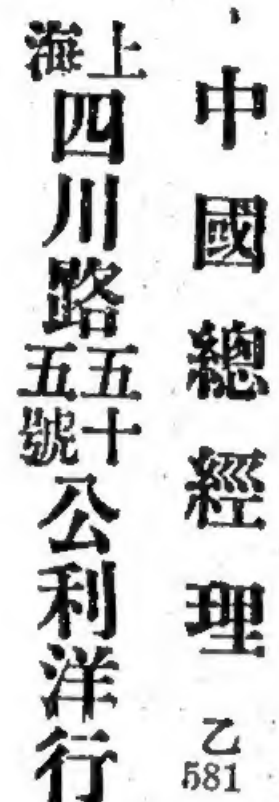 中國總經理 乙 581
上海四川路五十五號公利洋行